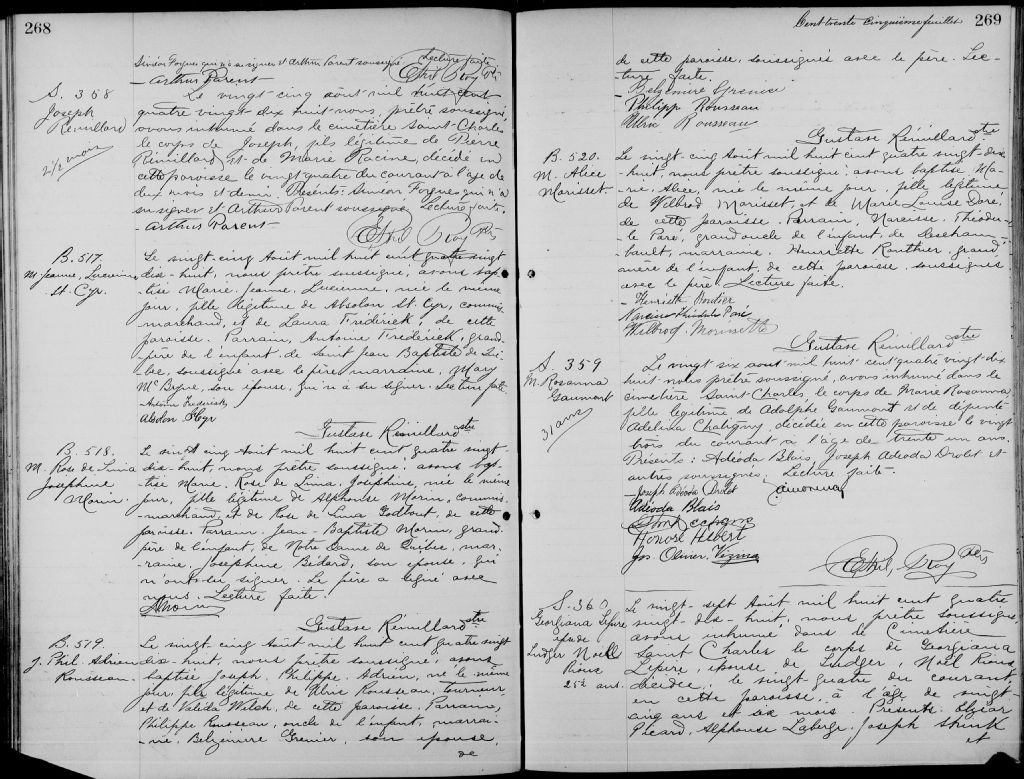 268
Simson Forgues qui n'a su signer et Arthur Parent soussigné. Lecture faite
- Arthur Parent
S. 358
Joseph
Rémillard
2 1/2 mois
Le vingt-cinq août mil huit cent
quatre vingt dix huit nous, prêtre soussigné,
avons inhumé dans le cimetière Saint-Charles
le corps de Joseph, fils légitime de Pierre
Rémillard et de Marie Racine, décédé en
cette paroisse le vingt quatre du courant à l'age de
deux mois et demi. Présents: Simson Forgues qui n'a
su signer et Arthur Parent soussigné. Lecture faite.
- Arthur Parent
B. 517.
M. Jeanne, Lucienne
St. Cyr.
Le vingt-cinq Août mil huit cent quatre vingt
dix-huit, nous prêtre soussigné, avons bap-
tisé Marie, Jeanne, Lucienne, née le même
jour, fille légitime de Absolon St. Cyr, commis
marchand, et de Laura Fréderick, de cette
paroisse. Parrain, Antoine Fréderick, grand-
père de l'enfant de Saint Jean Baptiste de Qué-
bec, soussigné avec le père, marraine, Mary
Mc Byrne, son épouse, qui n'a su signer. Lecture faite.
- Antoine Frederick
Absolon StCyr
Gustave Rémillard ptre
B. 518.
M. Rose de Lima
Joséphine
Morin.
Le vingt-cinq Août mil huit cent quatre vingt-
dix-huit, nous, prêtre soussigné, avons bap-
tisé Marie, Rose de Lima, Joséphine, née le même
jour, fille légitime de Alphonse Morin, commis-
marchand, et de Rose de Lima Godbout, de cette
paroisse. Parrain, Jean-Baptiste Morin, grand-
père de l'enfant, de Notre Dame de Québec, mar-
raine, Joséphine Bédard, son épouse, qui
n'ont su signer. Le père a signé avec
nous. Lecture faite.
A Morin
Gustave Rémillard ptre
B. 519
J. Phil. Adrien
Rousseau.
Le vingt-cinq Août mil huit cent quatre vingt
dix-huit, nous, prêtre soussigné, avons
baptisé Joseph, Philippe, Adrien, né le même
jour, fils légitime de Ulric Rousseau, tourneur
et de Valéda Walsh, de cette paroisse. Parrain,
Philippe Rousseau, oncle de l'enfant, marrai-
ne, Belzémire Grenier, son épouse,
de
Cent trente cinquième feuillet
269
de cette paroisse, soussignés avec le père. Lec-
ture faite.
- Belzémire Grenier
- Philipp Rousseau
Ulric Rousseau
Gustave Rémillard ptre
B. 520.
M. Alice
Morisset.
Le vingt-cinq Août mil huit cent quatre vingt-dix-
huit, nous prêtre soussigné, avons baptisé Ma-
rie, Alice, née le même jour, fille légitime
de Wilbrod Morisset, et de Marie Louise Doré,
de cette paroisse. Parrain, Narcisse, Théodu-
le Paré, grand oncle de l'enfant, de Descham-
bault, marraine, Henriette Routhier, grand'
mère de l'enfant, de cette paroisse, soussignés
avec le père. Lecture faite.
Narcisse Théodule Paré
Wilbrod Morissette
Gustave Rémillard ptre
S. 359
M. Rosanna
Gaumont
31 ans
Le vingt six aout mil huit cent quatre vingt-dix
huit nous prêtre soussigné, avons inhumé dans le
cimetière Saint-Charles, le corps de Marie Rosanna
fille légitime de Adolphe Gaumont et de défunte
Adelina Chatigny, décédée en cette paroisse le vingt
trois du courant à l'age de trente un ans.
Présents: Adéoda Blais, Joseph Adéoda Drolet et
autres soussignés. Lecture faite.
- Joseph Adéoda Drolet
Adéoda Blais
Honoré Hébert
Jos. Olivier Vézina
S. 360
Georgiana Lépire
épouse
Ludger Noël
Rioux
25½ ans.
Le vingt-sept Août mil huit cent quatre
vingt-dix-huit, nous prêtre soussigné,
avons inhumé dans le Cimetière
Saint Charles le corps de Georgiana
Lépire, épouse de Ludger, Noël Rioux
décédée, le vingt quatre du courant
en cette paroisse, à l'âge de vingt-
cinq ans et six mois. Présents: Elzéar
Picard, Alphonse Laberge, Joseph Shink
et